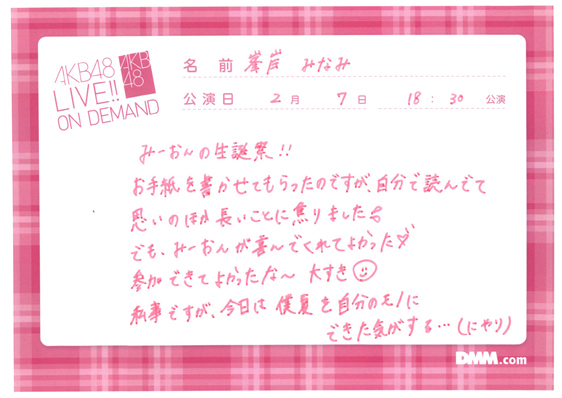 AKB48
LIVE!!
ON DEMAND
AKB
48
名 前 峯岸 みなみ
公演日 2月 7日 18:30 公演
みーおんの生誕祭!!
お手紙を書かせてもらったのですが、自分で読んでて
思いのほか長いことに焦りました
でも、みーおんが喜んでくれてよかった
参加できてよかったな〜 大すき
私事ですが、今日は 僕夏 を自分のモノに
できた気がする…(にやり)
DMM.com